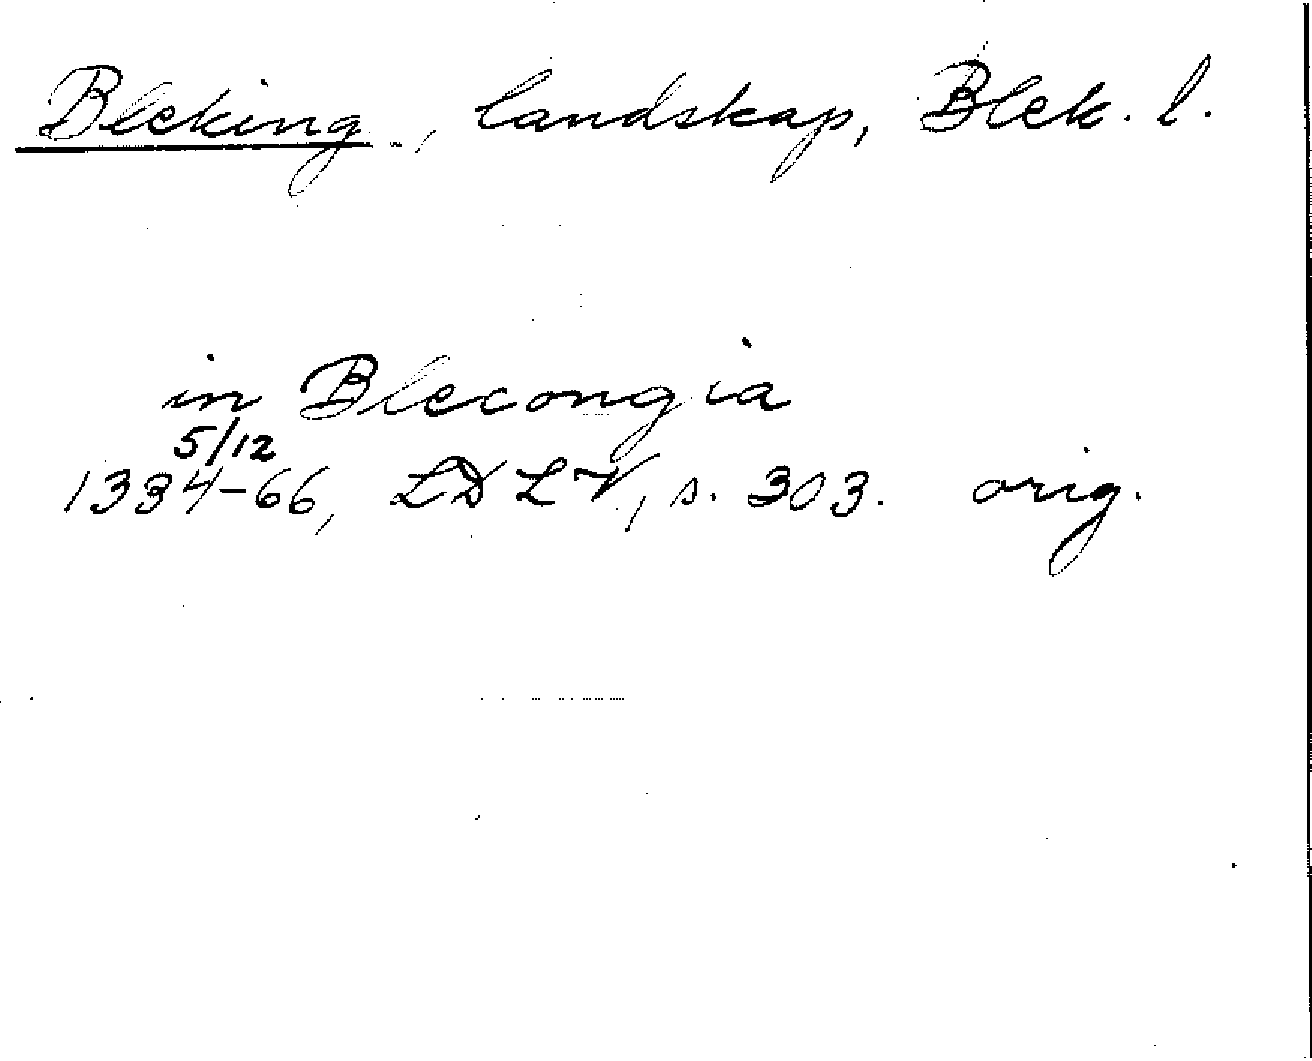 Bleking, landskap, Blek. l.
in Blecongia
5/12
1334-66, LD LV, s. 303. orig.